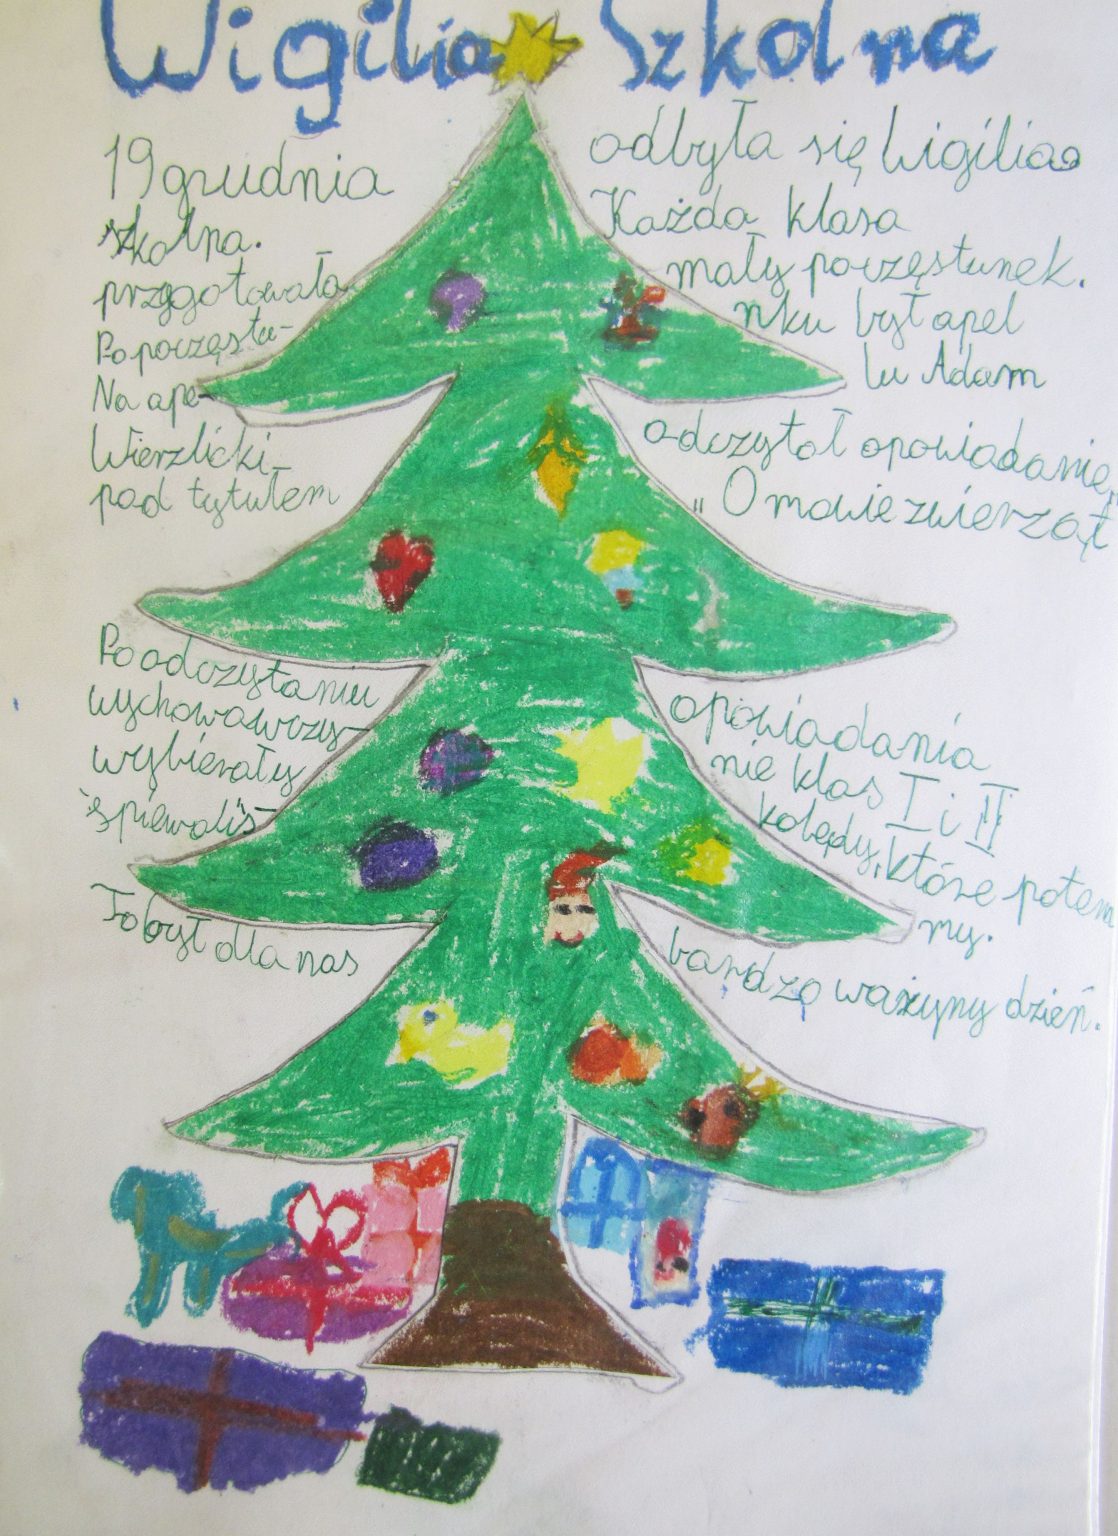 Wigilia Szkolna
19 grudnia odbyła się Wigilia
szkolna. Każda klasa
przygotowała mały poczęstunek.
Po poczęstu- nku był apel
Na ape- lu Adam
Wierzlicki odczytał opowiadanie,
pod tytułem „O mowie zwierząt"
Po odczytaniu opowiadania
wychowawczy- nie klas I i II
wybierały kolędy, które potem
śpiewaliś- my.
To był dla nas bardzo ważyny dzień.